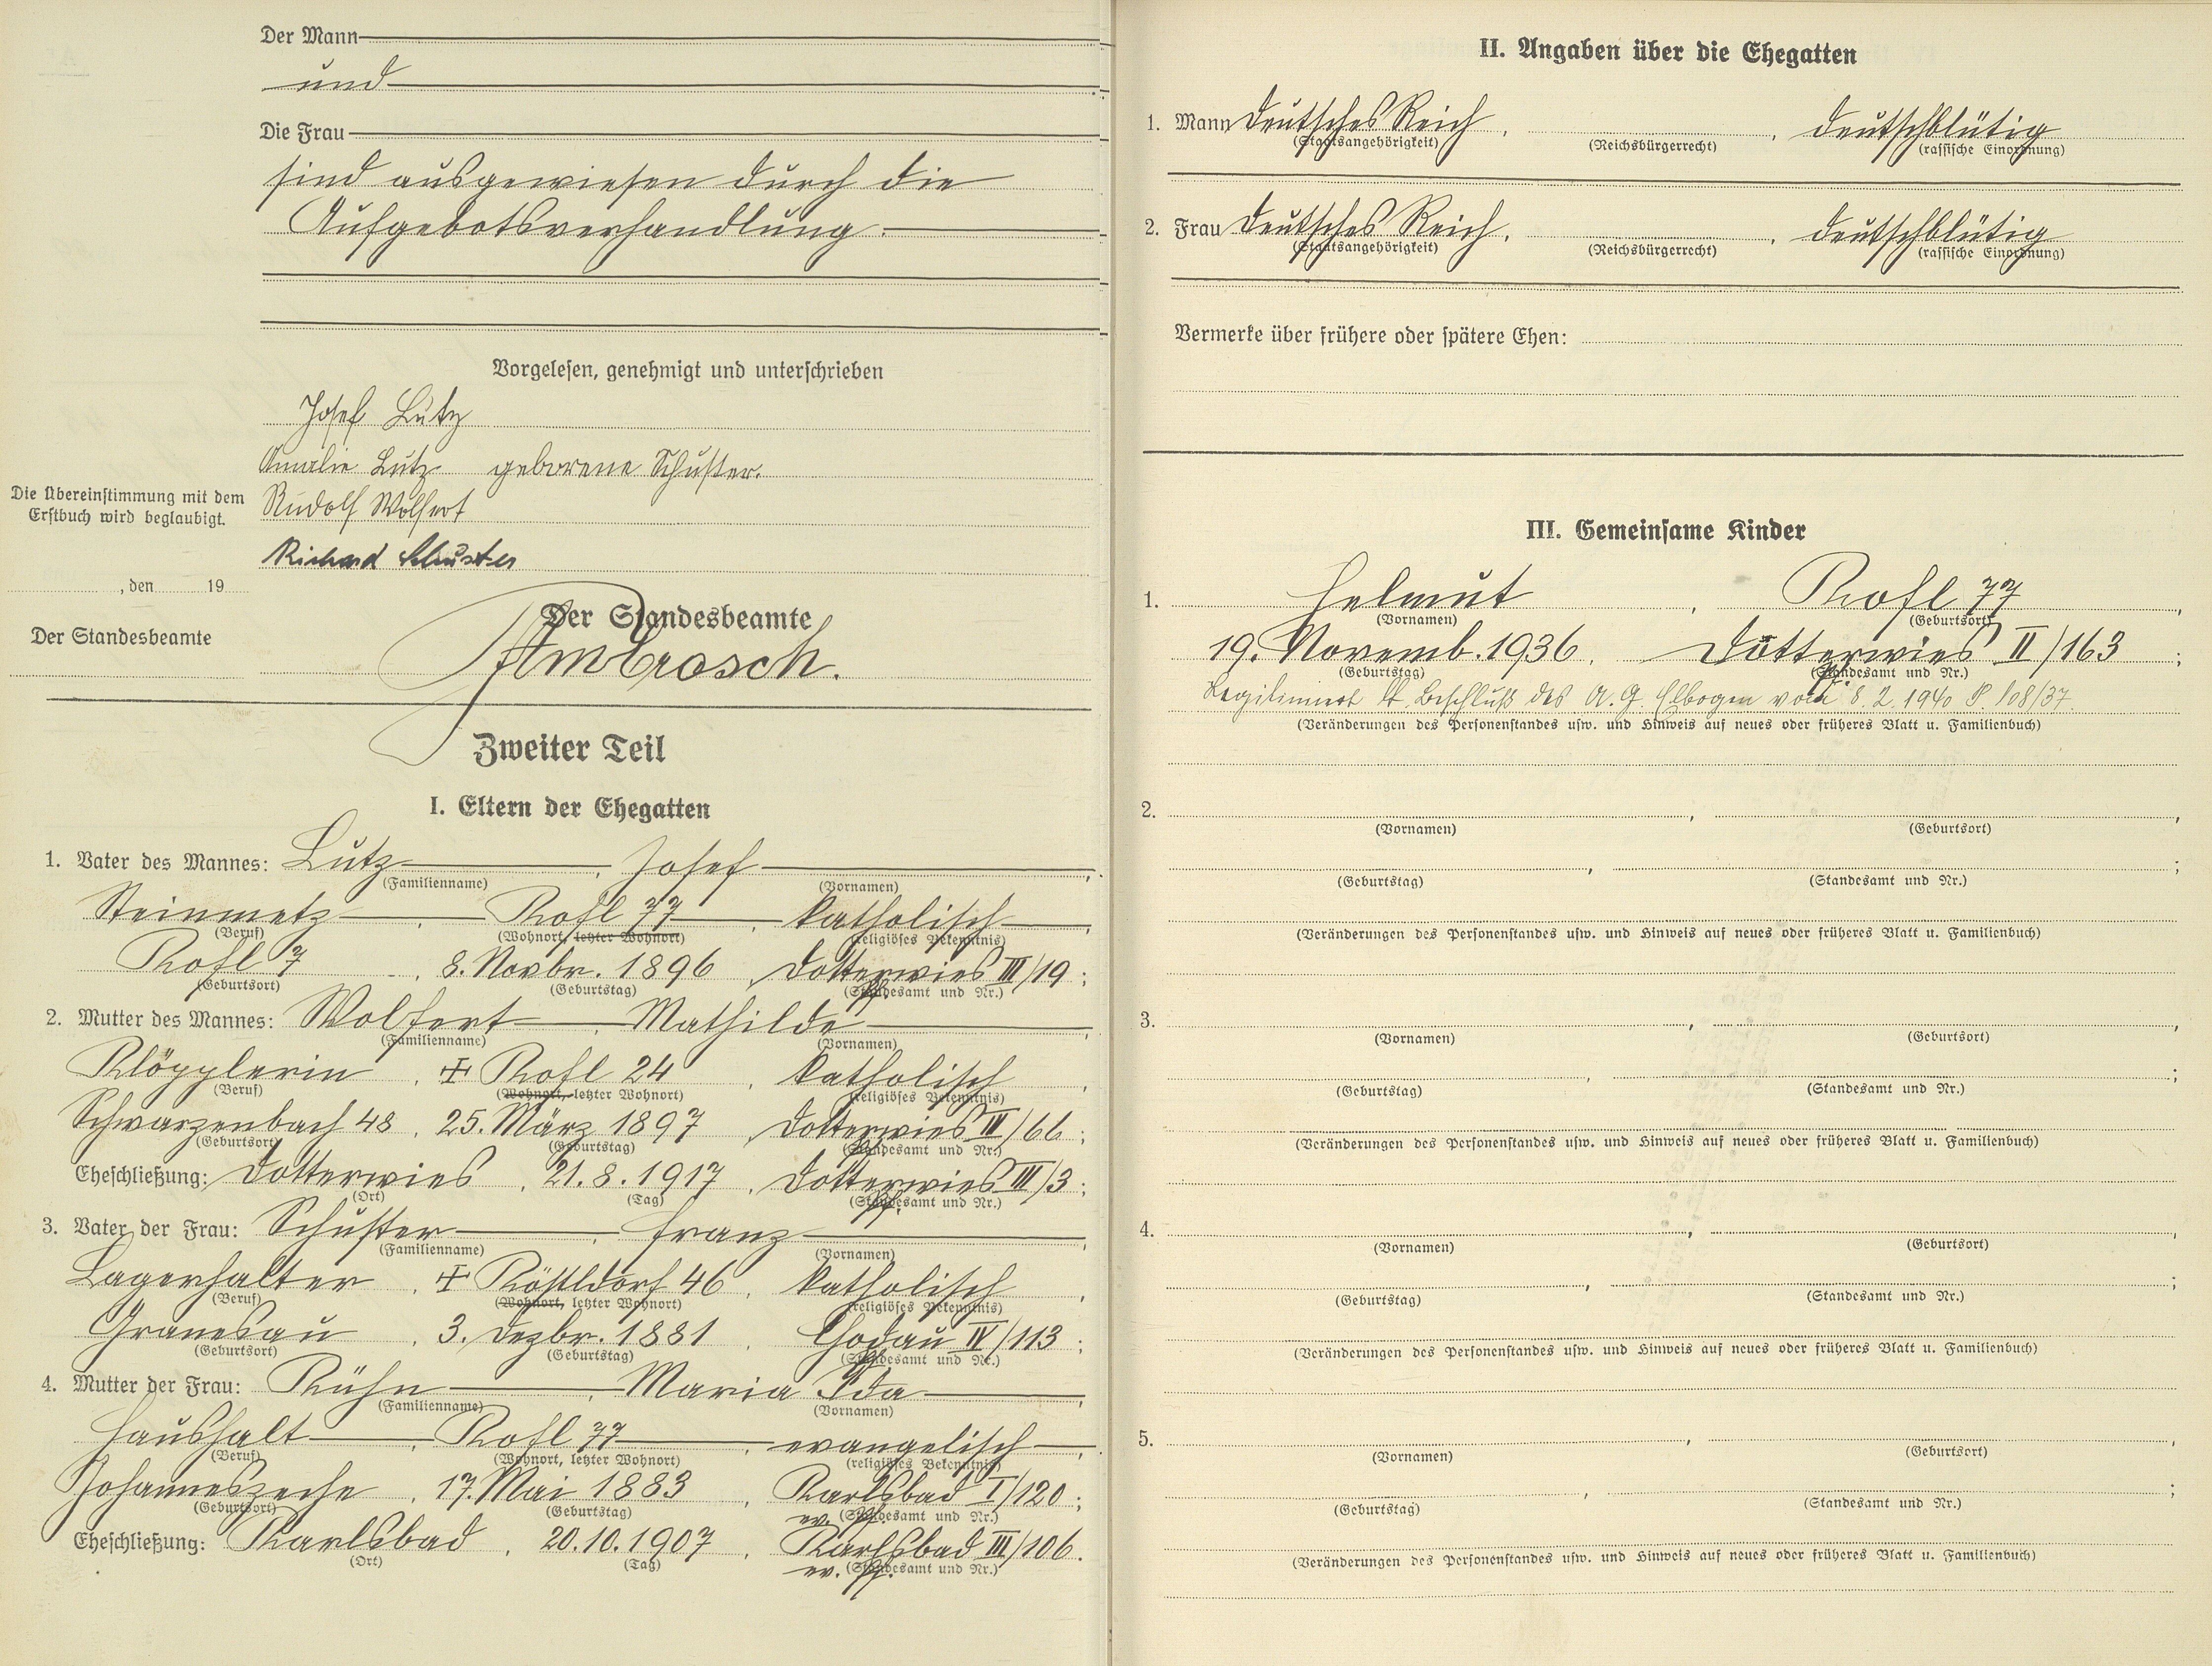 Der Mann
und
Die Frau
sind ausgewiesen durch die
Aufgebotsverhandlung.
Vorgelesen, genehmigt und unterschrieben
Josef Lutz
Amalie Lutz geborene Schuster.
Rudolf Wolfert
Richard Schuster
Die Übereinstimmung mit dem
Erstbuch wird beglaubigt.
, den 19
Der Standesbeamte
Der Standesbeamte
Ambrosch.
Zweiter Teil
I. Eltern der Ehegatten
1. Vater des Mannes: Lutz, Josef
(Familienname) (Vornamen)
Steinmetz, Rossl 77, katholisch,
(Beruf) (Wohnort, letzter Wohnort) (religiöses Bekenntnis)
Rossl 7, 8. Novbr. 1896, Dotterwies III/19;
(Geburtsort) (Geburtstag) (Standesamt und Nr.)
2. Mutter des Mannes: Wolfert, Mathilde
(Familienname) (Vornamen)
Klöpplerin, + Rossl 24, katholisch,
(Beruf) (Wohnort, letzter Wohnort) (religiöses Bekenntnis)
Schwarzenbach 48, 25. März 1897, Dotterwies IV/66;
(Geburtsort) (Geburtstag) (Standesamt und Nr.)
Eheschließung: Dotterwies, 21.8.1917, Dotterwies III/3;
(Ort) (Tag) (Standesamt und Nr.)
3. Vater der Frau: Schuster, Franz,
(Familienname) (Vornamen)
Lagerhalter, + Rösseldorf 46, katholisch,
(Beruf) (Wohnort, letzter Wohnort) (religiöses Bekenntnis)
Granesau, 3. Dezbr. 1881, Chodau IV/113;
(Geburtsort) (Geburtstag) (Standesamt und Nr.)
4. Mutter der Frau: Kühn, Maria Ida,
(Familienname) (Vornamen)
Haushalt, Rossl 77, evangelisch,
(Beruf) (Wohnort, letzter Wohnort) (religiöses Bekenntnis)
Johanneszeche, 17. Mai 1883, Karlsbad I/120;
(Geburtsort) (Geburtstag) ev. Pf. (Standesamt und Nr.)
Eheschließung: Karlsbad, 20.10.1907, Karlsbad III/106.
(Ort) (Tag) ev. Pf. (Standesamt und Nr.)
II. Angaben über die Ehegatten
1. Mann Deutsches Reich, , deutschblütig
(Staatsangehörigkeit) (Reichsbürgerrecht) (rassische Einordnung)
2. Frau Deutsches Reich, , deutschblütig
(Staatsangehörigkeit) (Reichsbürgerrecht) (rassische Einordnung)
Vermerke über frühere oder spätere Ehen:
III. Gemeinsame Kinder
1. Helmut, Rossl 77,
(Vornamen) (Geburtsort)
19. Novemb. 1936, Dotterwies II/163;
(Geburtstag) (Standesamt und Nr.)
Legitimiert lt. Beschluß des A. G. Elbogen vom 8.2.1940 P. 108/37.
(Veränderungen des Personenstandes usw. und Hinweis auf neues oder früheres Blatt u. Familienbuch)
2. , ,
(Vornamen) (Geburtsort)
, ;
(Geburtstag) (Standesamt und Nr.)
(Veränderungen des Personenstandes usw. und Hinweis auf neues oder früheres Blatt u. Familienbuch)
3. , ,
(Vornamen) (Geburtsort)
, ;
(Geburtstag) (Standesamt und Nr.)
(Veränderungen des Personenstandes usw. und Hinweis auf neues oder früheres Blatt u. Familienbuch)
4. , ,
(Vornamen) (Geburtsort)
, ;
(Geburtstag) (Standesamt und Nr.)
(Veränderungen des Personenstandes usw. und Hinweis auf neues oder früheres Blatt u. Familienbuch)
5. , ,
(Vornamen) (Geburtsort)
, ;
(Geburtstag) (Standesamt und Nr.)
(Veränderungen des Personenstandes usw. und Hinweis auf neues oder früheres Blatt u. Familienbuch)